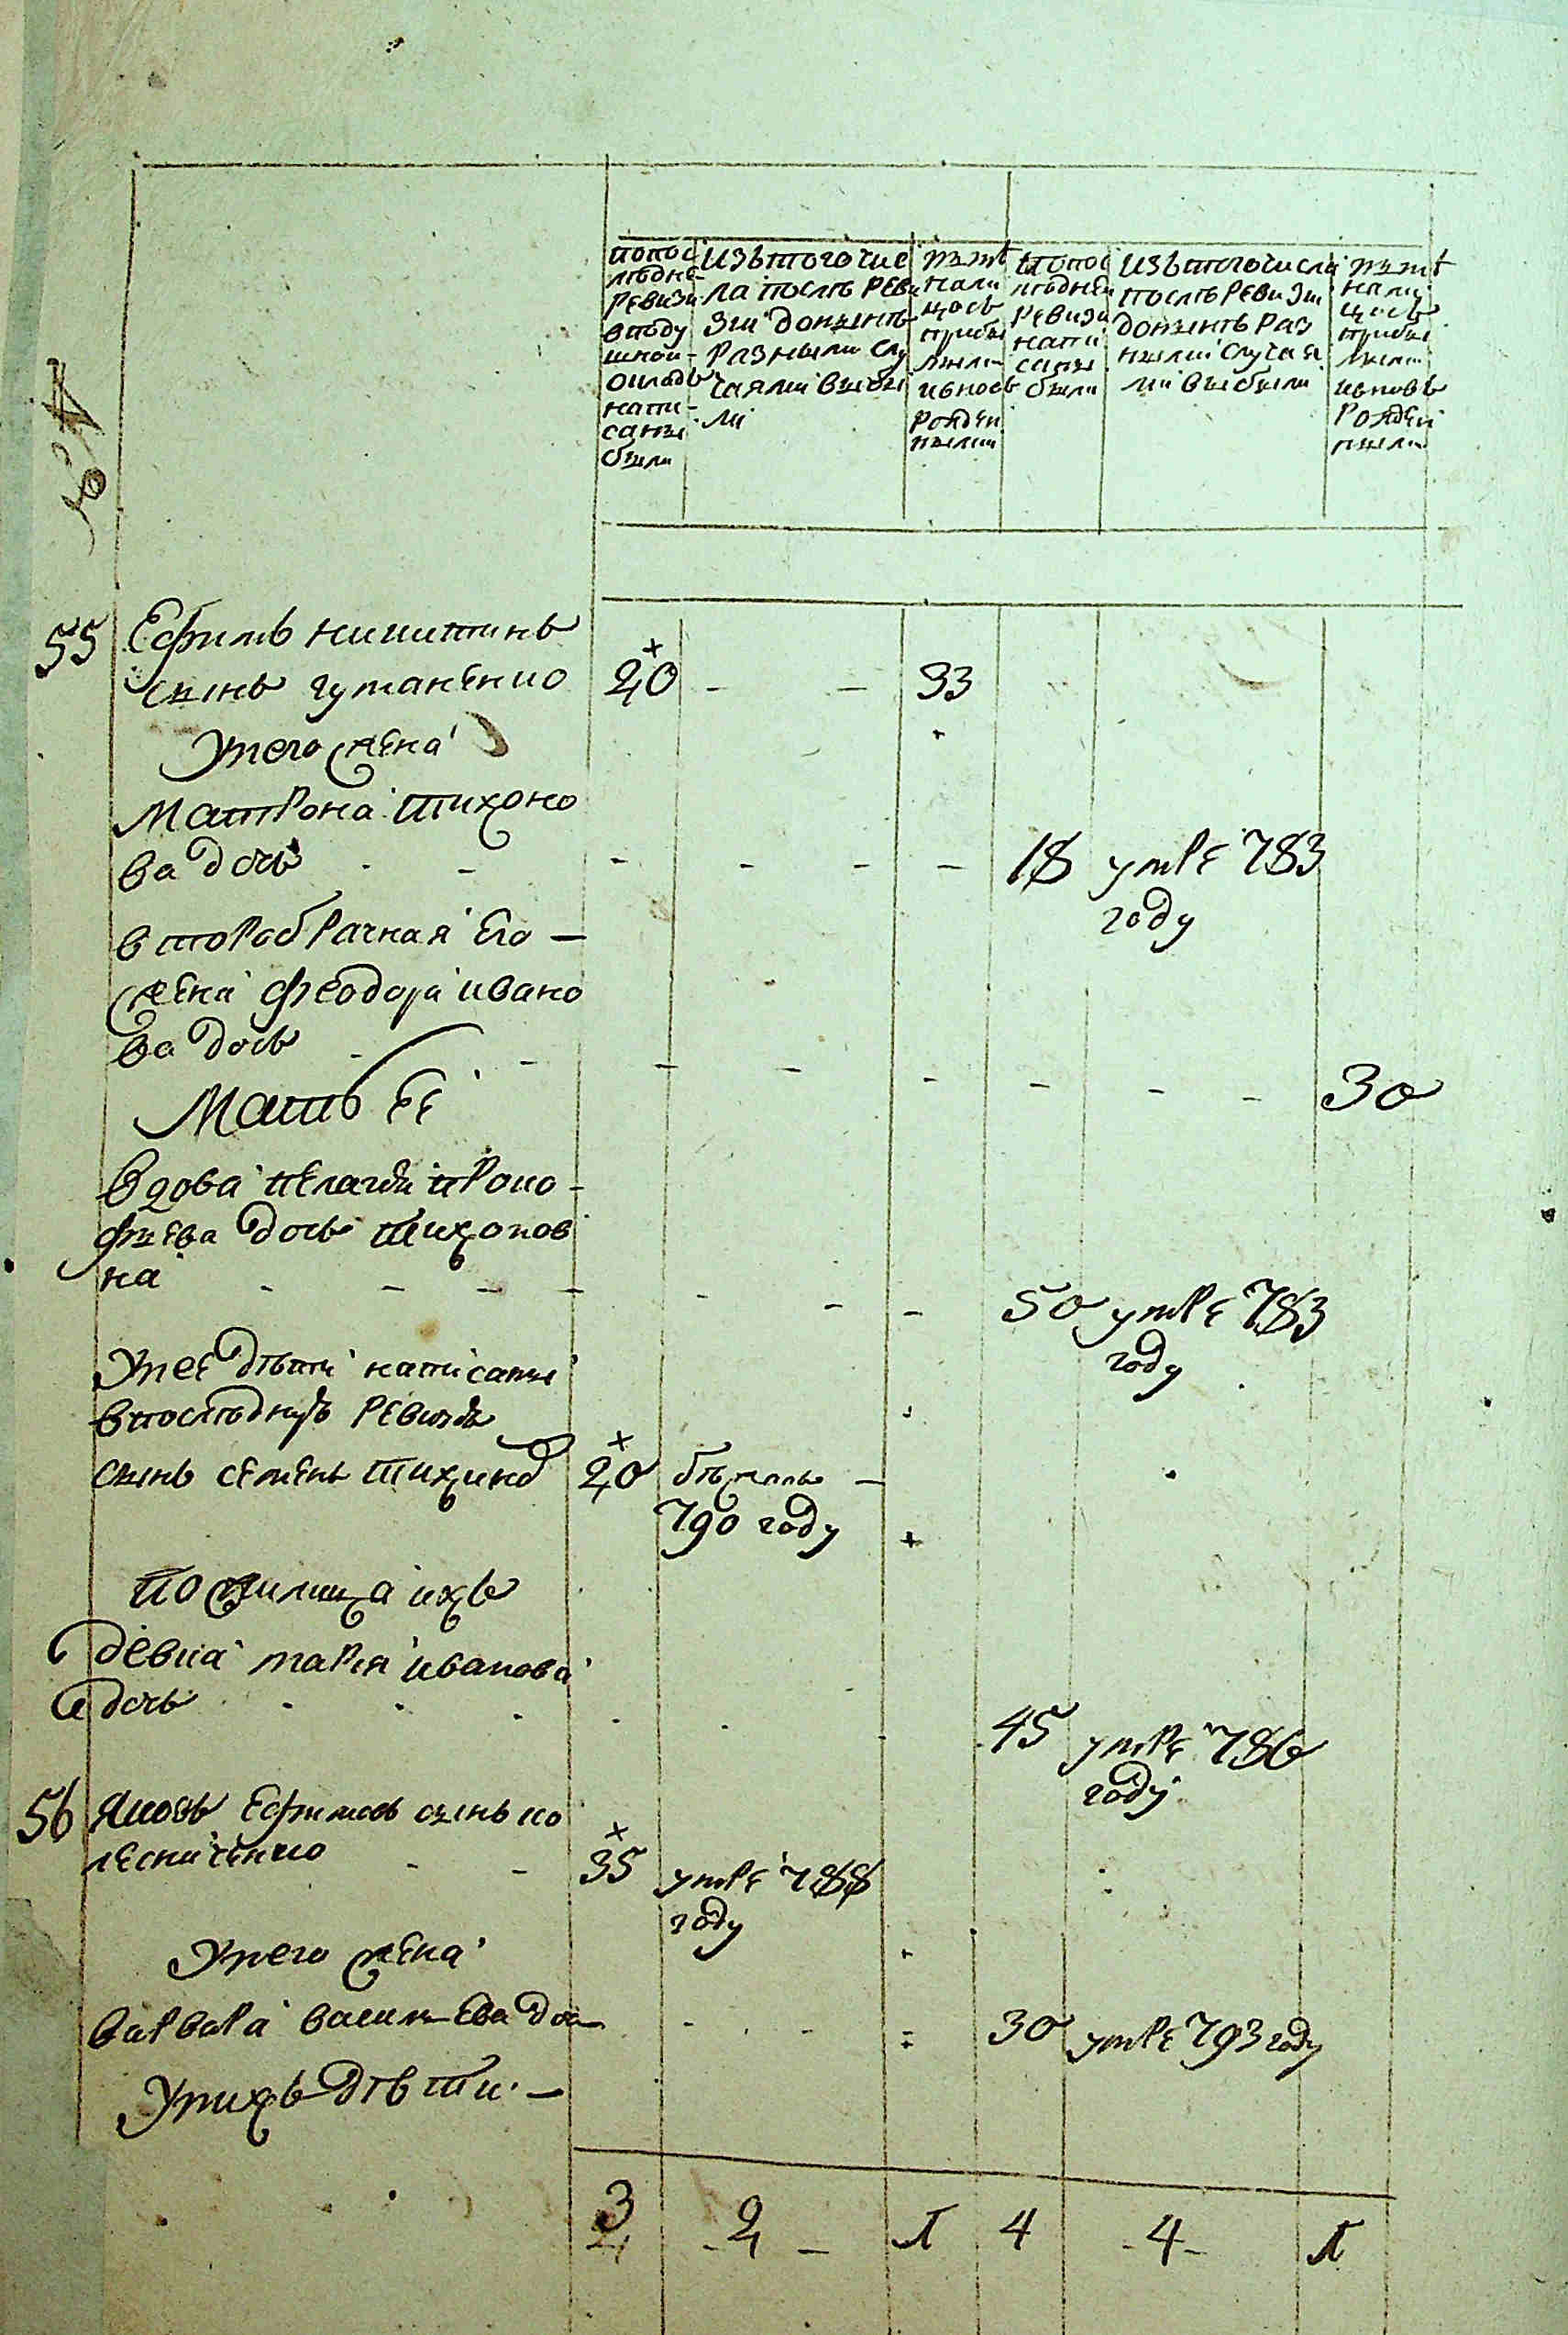 по пос
лѣдне
ревизи
в поду
шной
окладъ
напи-
саны
были
изъ того чис
ла послѣ реви
зіи донынѣ
разными слу
чаями выбы
ли
нынѣ
нали
цось
прибы
лыми
и вновь
рожден
ными
по пос
лѣдней
ревизи
напи
саны
были
изъ того числа
послѣ ревизіи
донынѣ раз
ными случая
ми выбыли
нынѣ
нали
цось
прибы
лыми
и вновь
рожден
ными
55 Ефимъ никитинъ
сынъ гутаненко 20 - - 33
У него жена
матрона тихоно
ва дочь - - - - - - 18 умре 783
году
второбрачная его —
жена феодора ивано
ва дочь - - - - - - - - 30
Мать ее
вдова пелагѣя проко-
фьева дочь тихонов
на - - - - - - - 50 умре 783
году
У нее дѣти написаны
в послѣднуѣ ревизѣи
сынъ семенъ тихинъ 20 бѣжалъ —
790 году
по жилица ихъ
девка марія иванова
дочь - - - - - - 45 умре 786
году
56 яковъ ефимовъ сынъ ко
лесниченко - - 35 умре 788
году
У него жена
варвара васильева дочь - - - 30 умре 793 году
У нихъ дѣти —
3 - 2 - 1 4 - 4 - 1